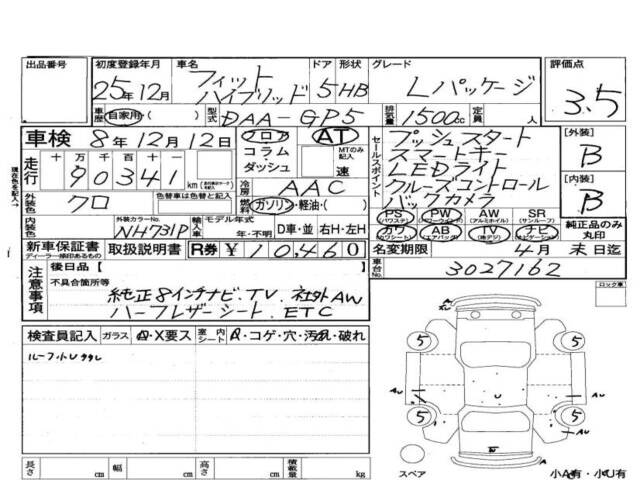 出品番号 初度登録年月 車名 ドア 形状 グレード 評価点
25年12月 フィット ハイブリッド 5 HB Lパッケージ 3.5
車歴 自家用・( ) 型式 DAA-GP5 排気量 1500cc 定員 人
車検 8年12月12日 フロア AT セールスポイント プッシュスタート [外装]
走行 十 万 千 百 十 一 コラム MTのみ記入 スマートキー B
90341 km ダッシュ 速 LEDライト
現在色を記入→ 外装色 クロ 色替車は色替と記入 冷房 AAC クルーズコントロール [内装]
燃料 ガソリン・軽油・( ) バックカメラ B
内装色 外装カラーNo. NH731P 輸入車 モデル年式 年・不明 D車・並 右H・左H
PS (パワステ) PW (パワーウィンドウ) AW (アルミホイル) SR (サンルーフ)
カワ (革シート) AB (エアバッグ) TV (地デジ) ナビ (ナビゲーション) 純正品のみ丸印
新車保証書 ディーラー捺印あるもの 取扱説明書 R券 ¥10,460 名変期限 4月末日迄
注意事項 後日品[ 車台No. 3027162
不具合箇所等 ロック車
純正8インチナビ.TV.社外AW
ハーフレザーシート.ETC
検査員記入 ガラス A・X要ス 室内 シート A・コゲ・穴・汚れ・破れ
ルーフ小Uタタレ
5 5
AU AU
U
5 5
スペア 小A有・小U有
長さ cm 幅 cm 高さ cm 積載量 kg